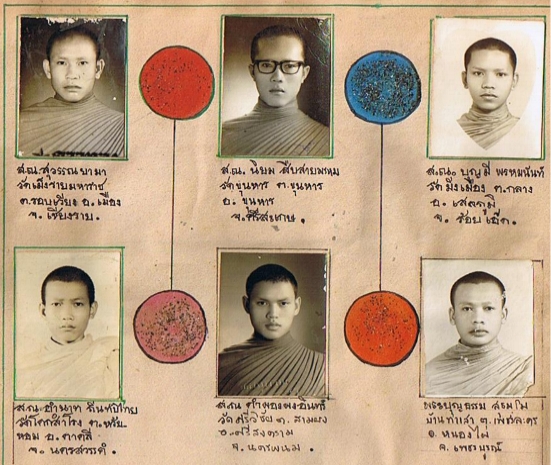 ส.ณ. สุวรรณ ยามา
วัดเม็งรายมหาราช
ต.รอบเวียง อ.เมือง
จ. เชียงราย.
ส.ณ. นิยม สืบสายพรหม
วัดขุนหาร ต.ขุนหาร
อ. ขุนหาร
จ.ศรีสะเกษ.
ส.ณ. บุญมี พรหมนันท์
วัดมิ่งเมือง ต.กลาง
อ. เสลภูมิ
จ. ร้อยเอ็ด.
ส.ณ. อำนาท ถิ่นทัปไทย
วัดโคกสำโรง ต.หัว
หอม อ.ตาคลี
จ. นครสวรรค์.
ส.ณ
วัดศรีวิชัย ต. สามผง
อ.ศรีสงคราม
จ. นครพนม.
พระบุญธรรม
ต.เพชรละคร
อ. หนองไผ่
จ. เพชรบูรณ์